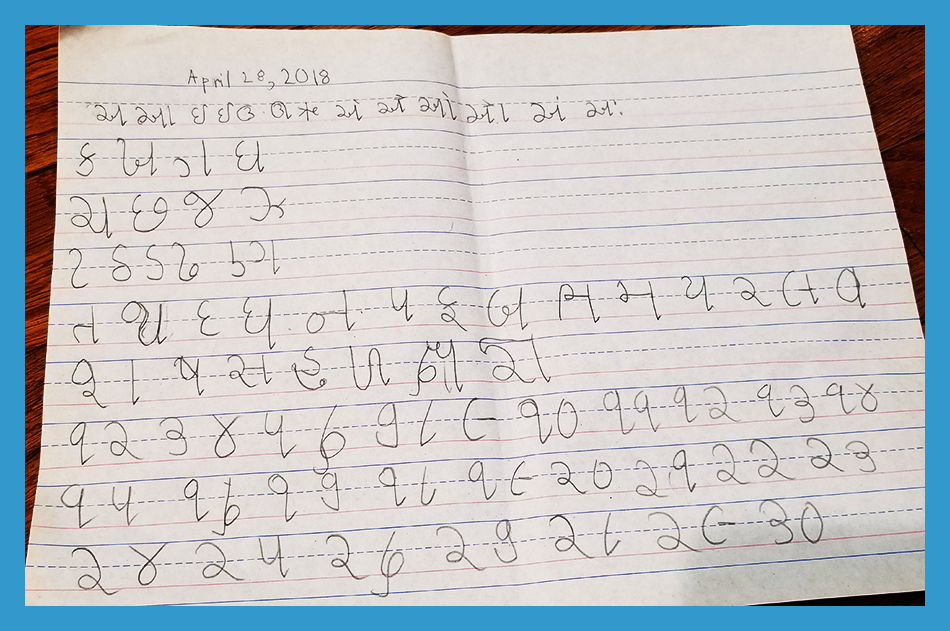 April 28, 2018
અ આ ઇ ઈ ઉ ઊ ઋ એ ઐ ઓ ઔ અં અઃ
ક ખ ગ ઘ
ચ છ જ ઝ
ટ ઠ ડ ઢ ણ
ત થ દ ધ ન પ ફ બ ભ મ ય ર લ વ
શ ષ સ હ ળ ક્ષ જ્ઞ
૧ ૨ ૩ ૪ ૫ ૬ ૭ ૮ ૯ ૧૦ ૧૧ ૧૨ ૧૩ ૧૪
૧૫ ૧૬ ૧૭ ૧૮ ૧૯ ૨૦ ૨૧ ૨૨ ૨૩
૨૪ ૨૫ ૨૬ ૨૭ ૨૮ ૨૯ ૩૦